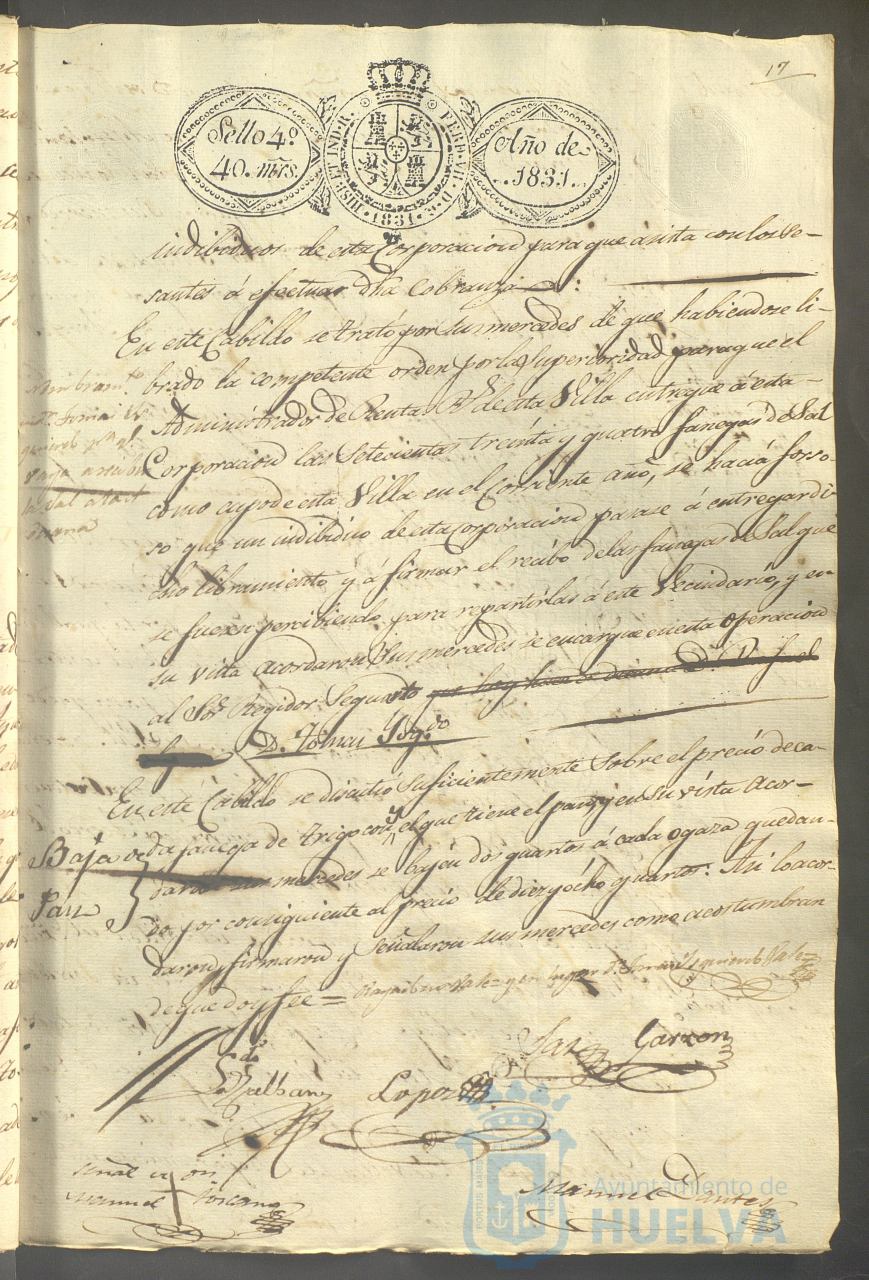 17
Sello 4º
40. mrs.
HISP. ET IND. R.
FERD. VII. D. G.
1831
Año de
1831.
indibiduos de esta Corporacion para que asista con los ve-
santes á efectuar dha Cobranza
En este Cabildo se trató por sus mercedes de que habiendose li-
brado la competente orden por la Superioridad para que el
Administrador de Renta Rs de esta Villa entregue á esta
Corporacion las Setecientas treinta y quatro fanegas de Sal
como cupo de esta Villa en el Corriente año, se hacia forso-
so que un indibiduo de esta Corporacion pasase á entregar di-
cho libramiento y á firmar el recibo de las fanegas de Sal que
se fuesen percibiendo para repartirlas á este Vecindario, y en
su vista acordaron Sus mercedes se encargue en esta Operacion
al Sor Regidor Segundo
D. Tomas Ysq.do
En este Cabildo se discutió suficientemente sobre el precio de ca-
Baja de
Pan
da fanega de trigo con el que tiene el pan, y en su vista Acor-
daron sus mercedes se bajen dos quartos á cada ogaza quedan-
do por consiguiente al precio de diez y ócho quartos: Asi lo acor-
daron, firmaron y Señalaron sus mercedes como acostumbran
de que doy fee =
Garzon
Lopez
Señal de
Manuel Toscano
Manuel
Ayuntamiento de
HUELVA